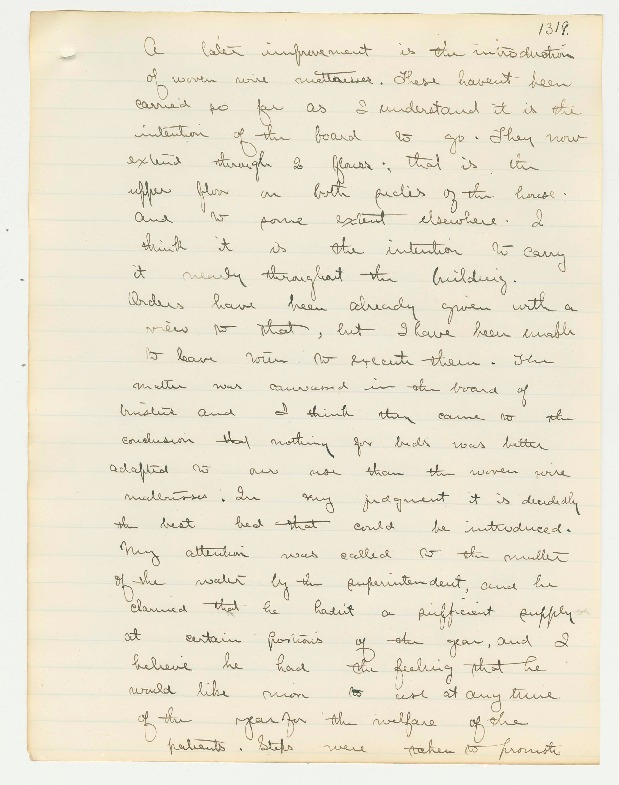 1319.
A later improvement is the introduction
of woven wire mattresses. These havent been
carried so far as I understand it is the
intention of the board to go. They now
extend through 2 floors; that is the
upper floor on both sides of the house.
and to some extent elsewhere. I
think it is the intention to carry
it nearly throughout the building.
Orders have been already given with a
view to that, but I have been unable
to leave to execute them. The
matter was canvassed in the board of
trustees and I think they came to the
conclusion that nothing for beds was better
adapted to our use than the woven wire
mattresses. In my judgment it is decidedly
the best bed that could be introduced.
My attention was called to the matter
of the water by the superintendent, and he
claimed that he hadnt a sufficient supply
at certain portions of the year, and I
believe he had the feeling that he
would like more to use at any time
of the year for the welfare of the
patients. Steps were taken to promote